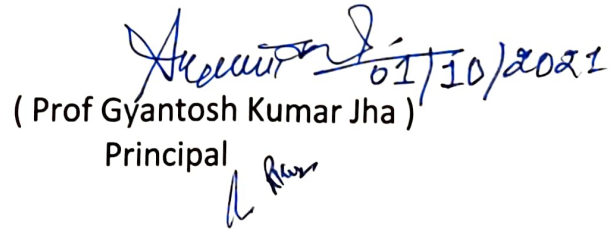 01/10/2021
( Prof Gyantosh Kumar Jha )
Principal